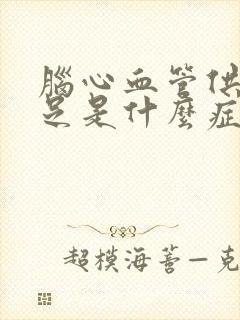 腦心血管供
足是什麼症
超模海蒂—克